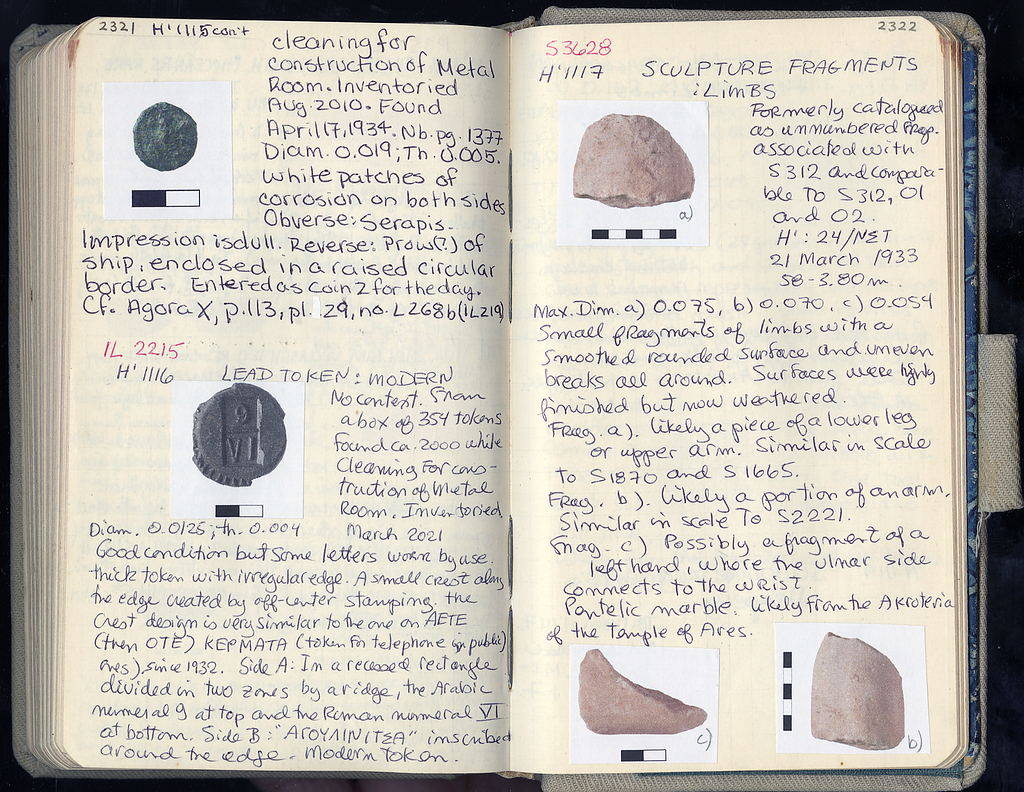 2321 H'1115 con't
cleaning for
construction of Metal
Room. Inventoried
Aug. 2010. Found
April 17, 1934. Nb. pg. 1377
Diam. 0.019; Th. 0.005.
White patches of
corrosion on both sides
Obverse: Serapis.
Impression is dull. Reverse: Prow(?) of
ship, enclosed in a raised circular
border. Entered as coin 2 for the day.
Cf. Agora X, p. 113, pl. 29, no. L268b (IL219)
IL 2215
H'1116 LEAD TOKEN: MODERN
No context. From
a box of 354 tokens
found ca. 2000 while
cleaning for cons-
truction of Metal
Room. Inventoried
Diam. 0.0125; th. 0.004 March 2021
Good condition but some letters worn by use.
thick token with irregular edge. A small crest along
the edge created by off-center stamping. the
crest design is very similar to the one on AETE
(then OTE) KEPMATA (token for telephone in public
), since 1932. Side A: In a recessed rectangle
divided in two zones by a ridge, the Arabic
numeral 9 at top and the Roman numeral VI
at bottom. Side B: inscribed
around the edge. Modern token.
9
VI
2322
S3628
H'1117 SCULPTURE FRAGMENTS
: LIMBS
Formerly catalogued
as unnumbered frag.
associated with
S 312 and compara-
ble to S 312, 01
and 02.
H': 24/NET
21 March 1933
58 -3.80 m.
a)
Max. Dim. a) 0.075, b) 0.070, c) 0.054
Small fragments of limbs with a
smoothed rounded surface and uneven
breaks all around. Surfaces were highly
finished but now weathered.
Frag. a). Likely a piece of a lower leg
or upper arm. Similar in scale
to S1870 and S 1665.
Frag. b). Likely a portion of an arm.
Similar in scale to S2221.
Frag. c) Possibly a fragment of a
left hand, where the ulnar side
connects to the wrist.
Pentelic marble. Likely from the Akroteria
of the Temple of Ares.
c)
b)